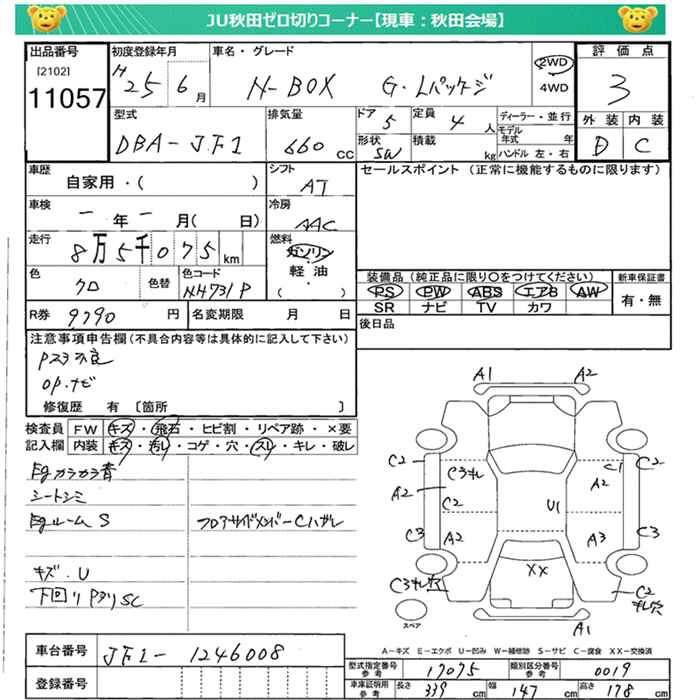 JU秋田ゼロ切りコーナー【現車：秋田会場】
出品番号 [2102] 11057
初度登録年月 H25年6月
車名・グレード N-BOX G・Lパッケージ
2WD
4WD
評価点 3
外装 D 内装 C
型式 DBA-JF1
排気量 660 CC
ドア 5 定員 4 人
形状 SW 積載 kg
ディーラー・並行
モデル年式 年
ハンドル 左・右
車歴 自家用・( )
シフト AT
セールスポイント (正常に機能するものに限ります)
車検 ー年ー月( 日)
冷房 AAC
走行 8万5千075km
燃料 ガソリン・軽油・( )
色 クロ 色替
色コード NH731P
装備品 (純正品に限り○をつけてください)
PS PW ABS エアB AW
SR ナビ TV カワ
新車保証書 有・無
R券 9790 円
名変期限 月 日
後日品
注意事項申告欄 (不具合内容等は具体的に記入して下さい)
Pスラ不良
OP.ナビ
修復歴 有 [箇所 ]
検査員記入欄
FW キズ・飛石・ヒビ割・リペア跡・×要
内装 キズ・汚レ・コゲ・穴・スレ・キレ・破レ
Egカラカラ音
シートシミ
Egルーム S
フロアサイドメンバーCハガレ
キズ.U
下回りPサリSC
A1 A2
C2 C3キレ C1 C2
A2 A2
C2 U1
C3 A2 A3 C3
XX
C3キレ穴 C2キレ穴
スペア A1
A－キズ E－エクボ U－凹み W－補修跡 S－サビ C－腐食 XX－交換済
車台番号 JF1-1246008
登録番号
型式指定番号 参考 17075
類別区分番号 参考 0019
車庫証明用 参考 長さ 339 cm 幅 147 cm 高さ 178 cm